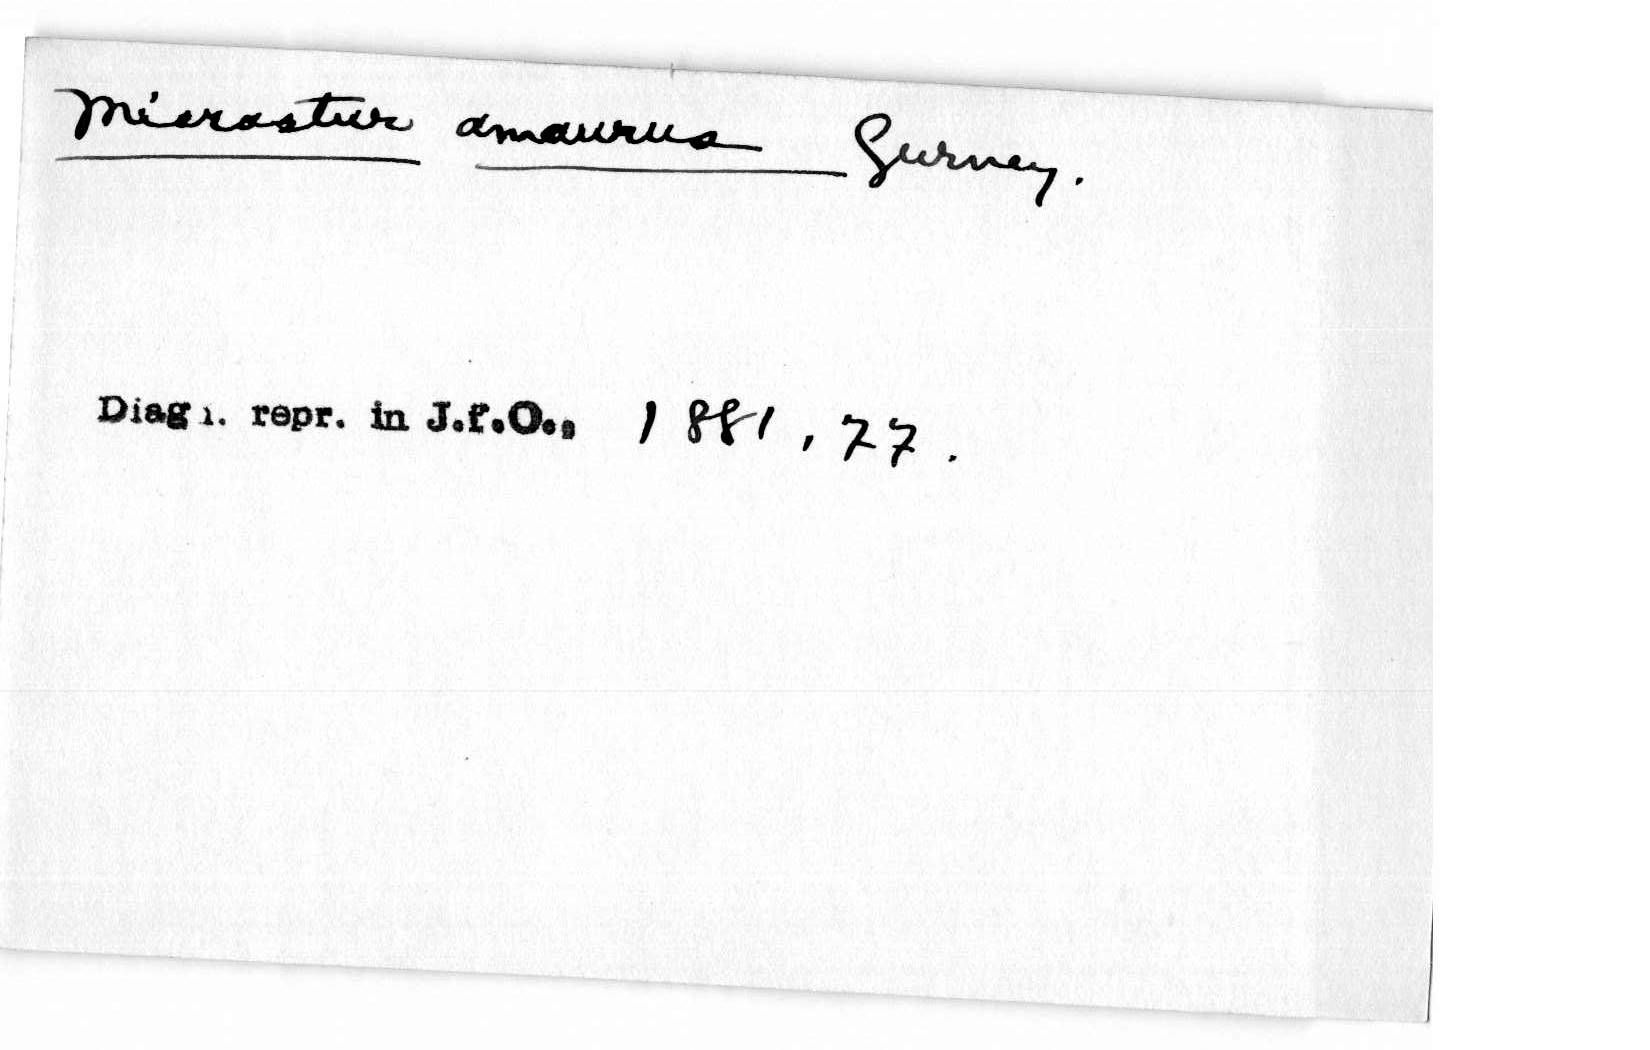 Micrastur amaurus Gurney.
Diagn. repr. in J.f.O., 1881, 77.